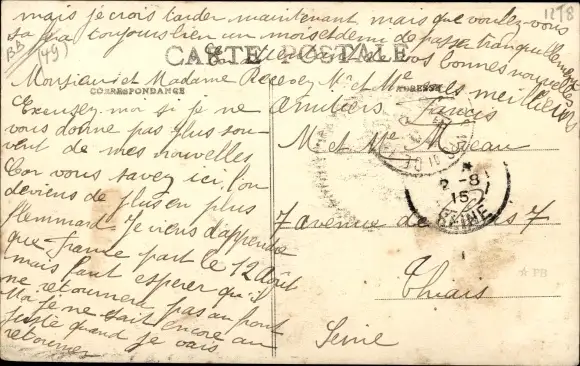 mais je crois tarder maintenant mais que voulez-vous
toujours bien un mois et demi de passer tranquillement
de vos bonnes nouvelles
CARTE POSTALE
CORRESPONDANCE
ADRESSE
Monsieur et Madame Recevez Mr et Mme mes meilleurs
amitiers Francis
Excusez moi si je ne
vous donne pas plus sou-
vent de mes nouvelles
Car vous savez ici l'on
deviens de plus en plus
flemmard. Je viens d'apprendre
que France part le 12 Août
mais faut esperer qu'il
ne retournera pas au front
Moi je ne sait encore au
juste quand je vais
retourner
M et Mme Moreau
7 avenue de 7
Thiais
Seine
2 -8
15
SEINE
1218
BB
(49)
PB